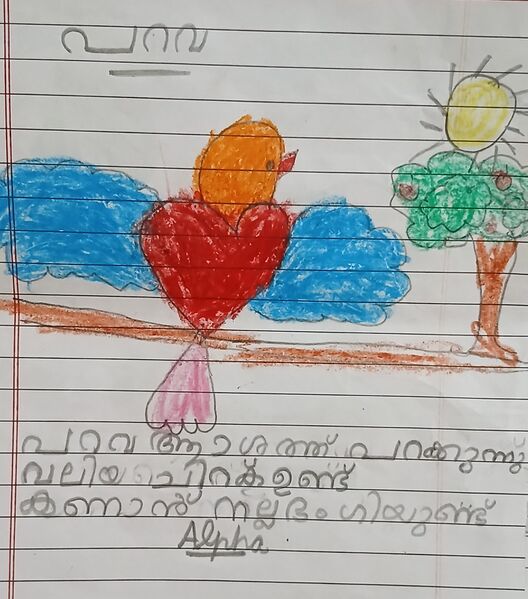 പറവ
പറവ ആശത്ത് പറക്കുന്നു
വലിയ ചിറക് ഉണ്ട്
കണാൻ നല്ല ഭംഗിയുണ്ട്
Alpha